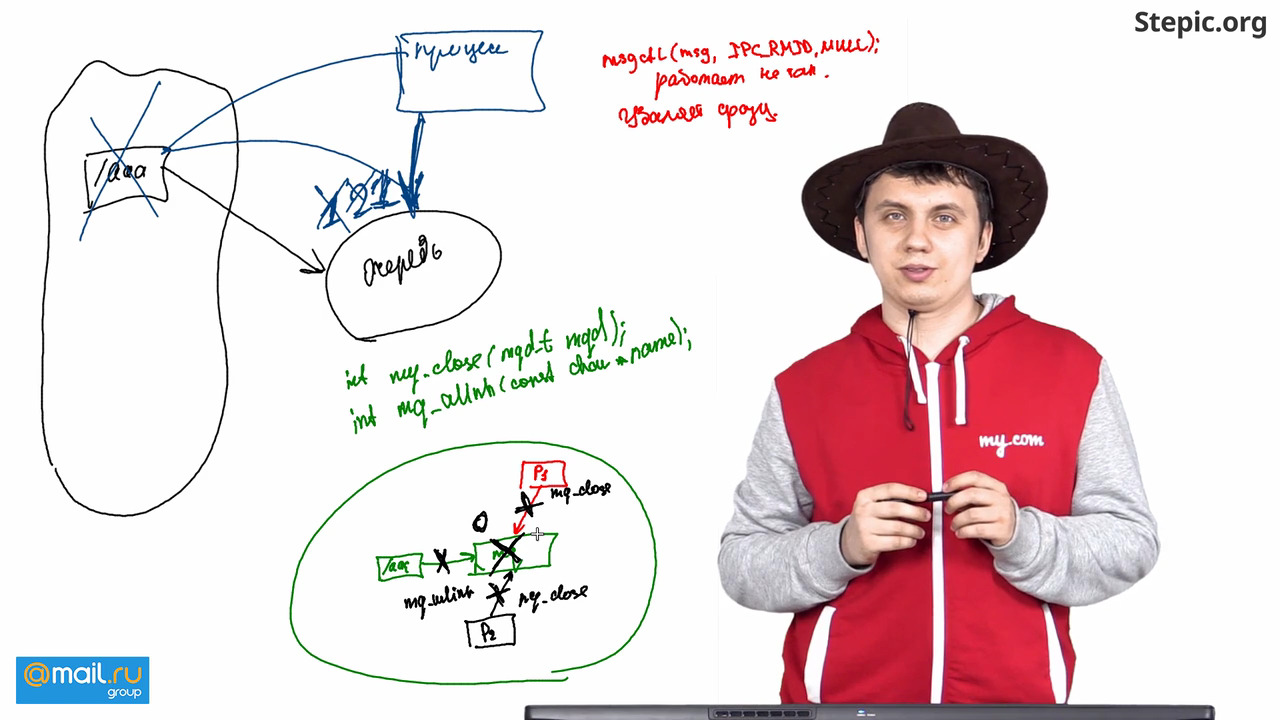 Stepic.org
процесс
msgctl(msg, IPC_RMID, NULL);
работает не так.
Удаляет сразу.
/aaa
1 2 1
Очередь
int mq_close(mqd_t mqd);
int mq_unlink(const char *name);
P1
mq_close
0
/aaa
mq_unlink
mq_close
P2
my.com
@mail.ru
group